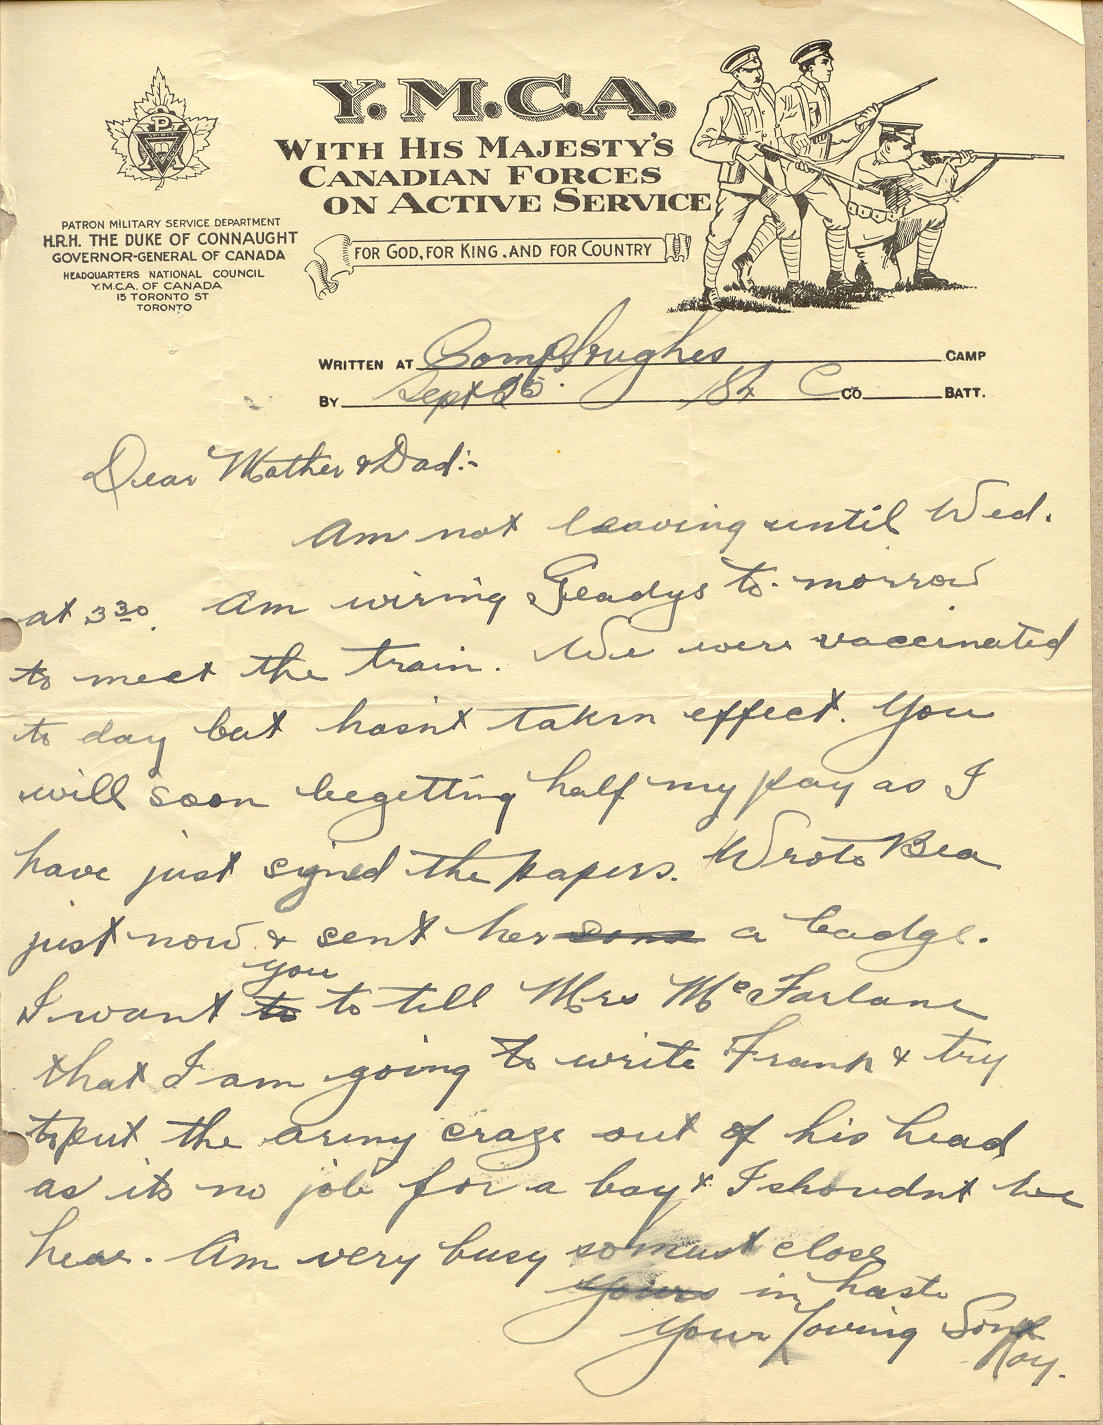 Y.M.C.A.
WITH HIS MAJESTY'S
CANADIAN FORCES
ON ACTIVE SERVICE
FOR GOD, FOR KING, AND FOR COUNTRY
PATRON MILITARY SERVICE DEPARTMENT
H.R.H. THE DUKE OF CONNAUGHT
GOVERNOR-GENERAL OF CANADA
HEADQUARTERS NATIONAL COUNCIL
Y.M.C.A. OF CANADA
15 TORONTO ST
TORONTO
WRITTEN AT Camp Hughes CAMP
BY Sept 25. C CO BATT.
Dear Mother & Dad:-
Am not leaving until Wed.
at 3 30. Am wiring Gladys to-morrow
to meet the train. We were vaccernated
to day but hasn't taken effect. You
will soon be getting half my pay as I
have just signed the papers. Wrote Bea
just now & sent her some a badge.
you
I want to to tell Mrs McFarlane
that I am going to write Frank & try
to put the army craze out of his head
as its no job for a boy & I shoudnt be
hear. Am very busy so must close
Yours in haste
Your loving Son
Roy.